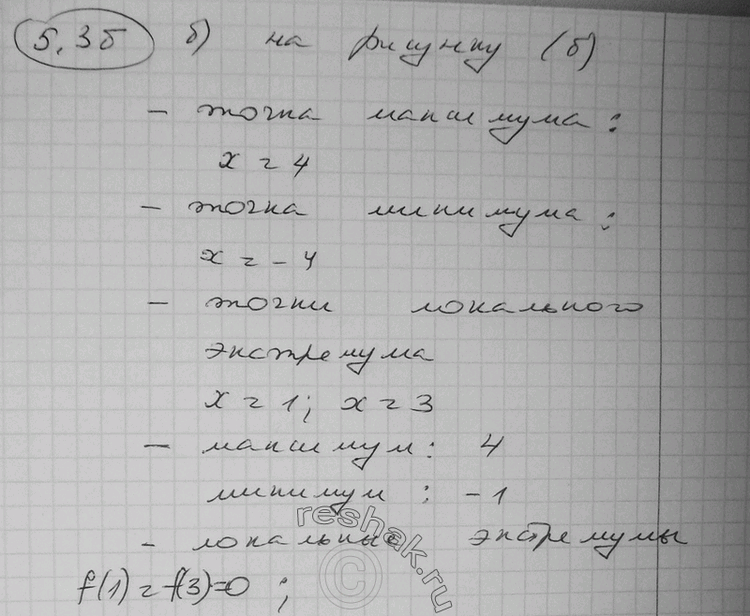 5.3б б) на рисунку (б)
- точка максимума:
x = 4
- точка минимума:
x = -4
- точки локального
экстремума
x = 1; x = 3
- максимум: 4
минимум: -1
- локальные экстремумы
f(1) = f(3) = 0;
reshak.ru
©